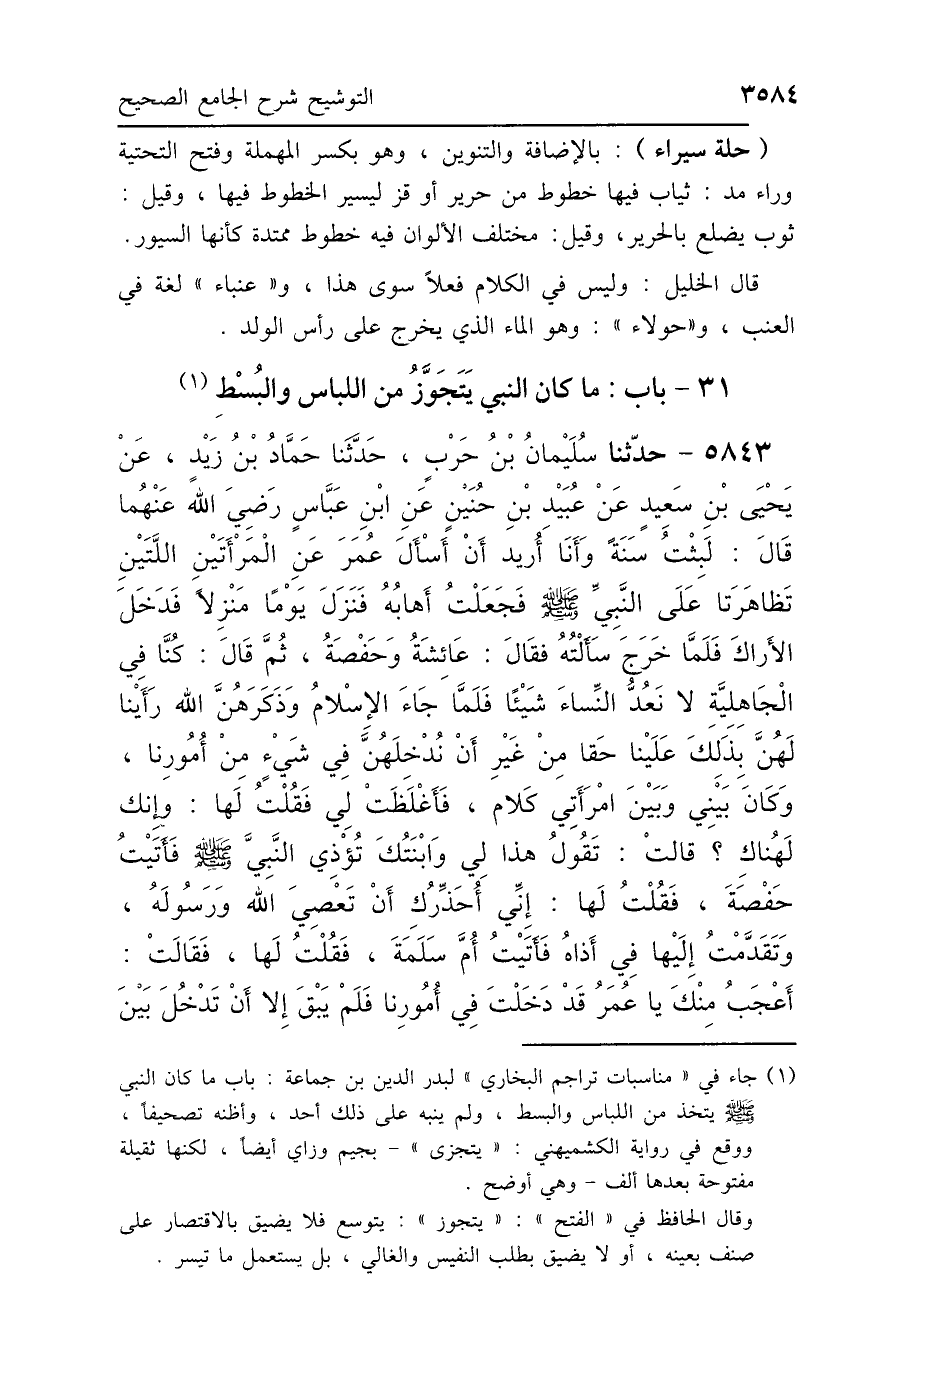 ٣٥٨٤ التوشيح شرح الجامع الصحيح
( حلة سيراء ) : بالإضافة والتنوين ، وهو بكسر المهملة وفتح التحتية
وراء مد : ثياب فيها خطوط من حرير أو قز ليسير الخطوط فيها ، وقيل :
ثوب يضلع بالحرير، وقيل: مختلف الألوان فيه خطوط ممتدة كأنها السيور.
قال الخليل : وليس في الكلام فعلاً سوى هذا ، و« عنباء » لغة في
العنب ، و«حولاء » : وهو الماء الذي يخرج على رأس الولد .
٣١ - باب : ما كان النبي يَتَجَوَّزُ من اللباس والبُسْطِ (١)
٥٨٤٣ - حدّثنا سُلَيْمانُ بْنُ حَرْبٍ ، حَدَّثَنا حَمَّادُ بْنُ زَيْدٍ ، عَنْ
يَحْيَى بْنِ سَعِيدٍ عَنْ عُبَيْدِ بْنِ حُنَيْنٍ عَنِ ابْنِ عَبَّاسٍ رَضِيَ الله عَنْهُما
قَالَ : لَبِثْتُ سَنَةً وَأَنَا أُرِيد أَنْ أَسْأَلَ عُمَرَ عَنِ الْمَرْأَتَيْنِ اللَّتَيْنِ
تَظاهَرَتا عَلَى النَّبِيِّ ﷺ فَجَعَلْتُ أهابُهُ فَنَزَلَ يَوْمًا مَنْزِلاً فَدَخَلَ
الأراكَ فَلَمَّا خَرَجَ سَأَلْتُهُ فقَالَ : عَائشَةُ وَحَفْصَةُ ، ثُمَّ قَالَ : كُنَّا فِي
الْجَاهِلِيَّةِ لا نَعُدُّ النِّساءَ شَيْئًا فَلَمَّا جَاءَ الإسْلامُ وَذَكَرَهُنَّ الله رَأَيْنا
لَهُنَّ بِذَلِكَ عَلَيْنا حَقا مِنْ غَيْرِ أَنْ نُدْخِلَهُنَّ فِي شَيْءٍ مِنْ أُمُورِنا ،
وَكَانَ بَيْنِي وَبَيْنَ امْرَأتِي كَلَام ، فَأَغْلَظَتْ لِي فَقُلْتُ لَها : وإنِك
لَهُناكِ ؟ قالتْ : تَقُولُ هذا لِي وَابْنَتُكَ تُؤْذِي النَّبِيَّ ﷺ فَأَتَيْتُ
حَفْصَةَ ، فَقُلْتُ لَها : إنِّي أُحَذِّرُكِ أَنْ تَعْصِيَ الله وَرَسُولَهُ ،
وَتَقَدَّمْتُ إِلَيْها فِي أذاهُ فَأَتَيْتُ أُمَّ سَلَمَةَ ، فَقُلْتُ لَها ، فَقَالَتْ :
أَعْجَبُ مِنْكَ يا عُمَرُ قَدْ دَخَلْتَ فِي أُمُورِنا فَلَمْ يَبْقَ إلا أَنْ تَدْخُلَ بَيْنَ
(١) جاء في « مناسبات تراجم البخاري » لبدر الدين بن جماعة : باب ما كان النبي
ﷺ يتخذ من اللباس والبسط ، ولم ينبه على ذلك أحد ، وأظنه تصحيفاً ،
ووقع في رواية الكشميهني : « يتجزى » - بجيم وزاي أيضاً ، لكنها ثقيلة
مفتوحة بعدها ألف - وهي أوضح .
وقال الحافظ في « الفتح » : « يتجوز » : يتوسع فلا يضيق بالاقتصار على
صنف بعينه ، أو لا يضيق بطلب النفيس والغالي ، بل يستعمل ما تيسر .